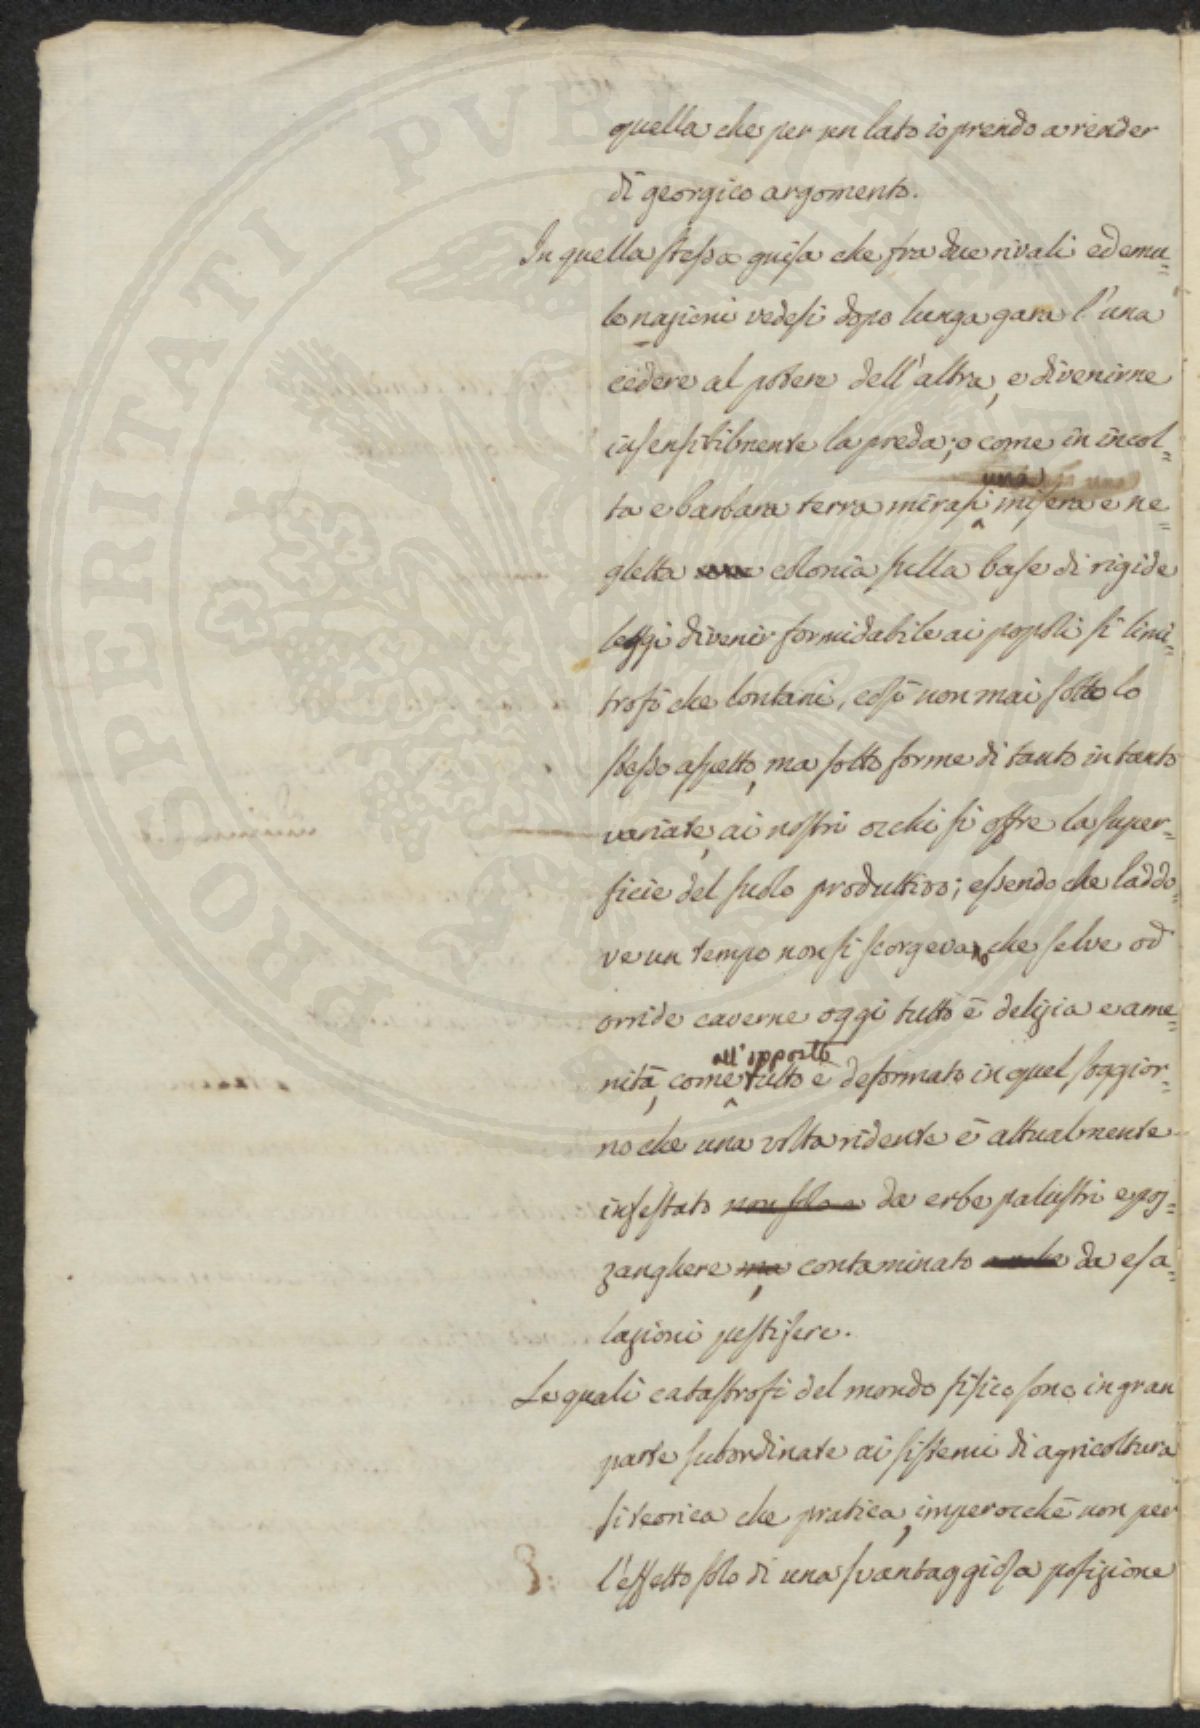 PROSPERITATI PUBLICAE AUGENDAE
quella che per un lato io prendo a render
di georgico argomento.
In quella stessa guisa che fra due rivali ed emu=
le nazioni vedesi dopo lunga gara l'una
cedere al potere dell'altra, e divenirne
insensibilmente la preda; o come in incol=
ta e barbara terra mirasi una misera e ne=
gletta una colonia sulla base di rigide
leggi divenir formidabile ai popoli sì limi=
trofi che lontani, così non mai sotto lo
stesso aspetto, ma sotto forme di tanto in tanto
variate, ai nostri occhi si offre la super=
ficie del suolo produttivo; essendo che laddo=
ve un tempo non si scorgevano che selve od
orride caverne oggi tutto è delizia e ame=
nità, come all'opposto tutto è deformato in quel soggior=
no che una volta ridente è attualmente
infestato non solo da erbe palustri e poz=
zanghere ma contaminato anche da esa=
lazioni pestifere.
Le quali catastrofi del mondo fisico sono in gran
parte subordinate ai sistemi di agricoltura
sì teorica che pratica, imperocchè non per
l'effetto solo di una svantaggiosa posizione